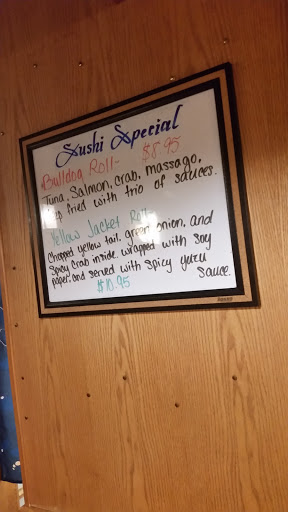 Sushi Special
Bulldog Roll- $8.95
Tuna, Salmon, crab, massago,
deep fried with trio of sauces.
Yellow Jacket Roll
Chopped yellow tail, green onion, and
Spicy crab inside. wrapped with soy
paper. and served with spicy yuzu
sauce.
$10.95